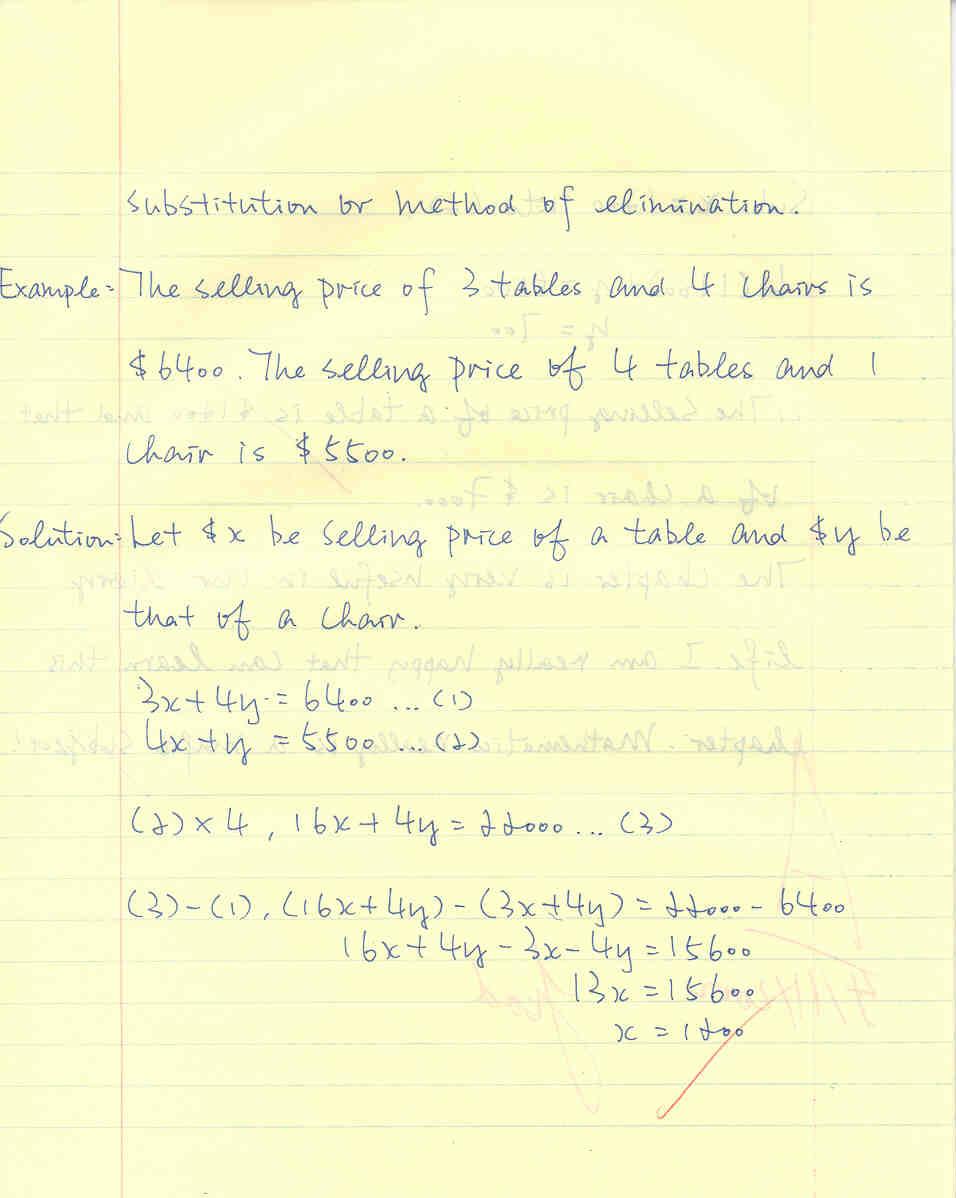 substitution or method of elimination.
Example: The selling price of 3 tables and 4 chairs is
$6400. The selling price of 4 tables and 1
chair is $5500.
Solution: Let $x be selling price of a table and $y be
that of a chair.
3x+4y=6400 ... (1)
4x+y=5500 ... (2)
(2)×4, 16x+4y=22000 ... (3)
(3)-(1), (16x+4y)-(3x+4y)=22000-6400
16x+4y-3x-4y=15600
13x=15600
x=1200